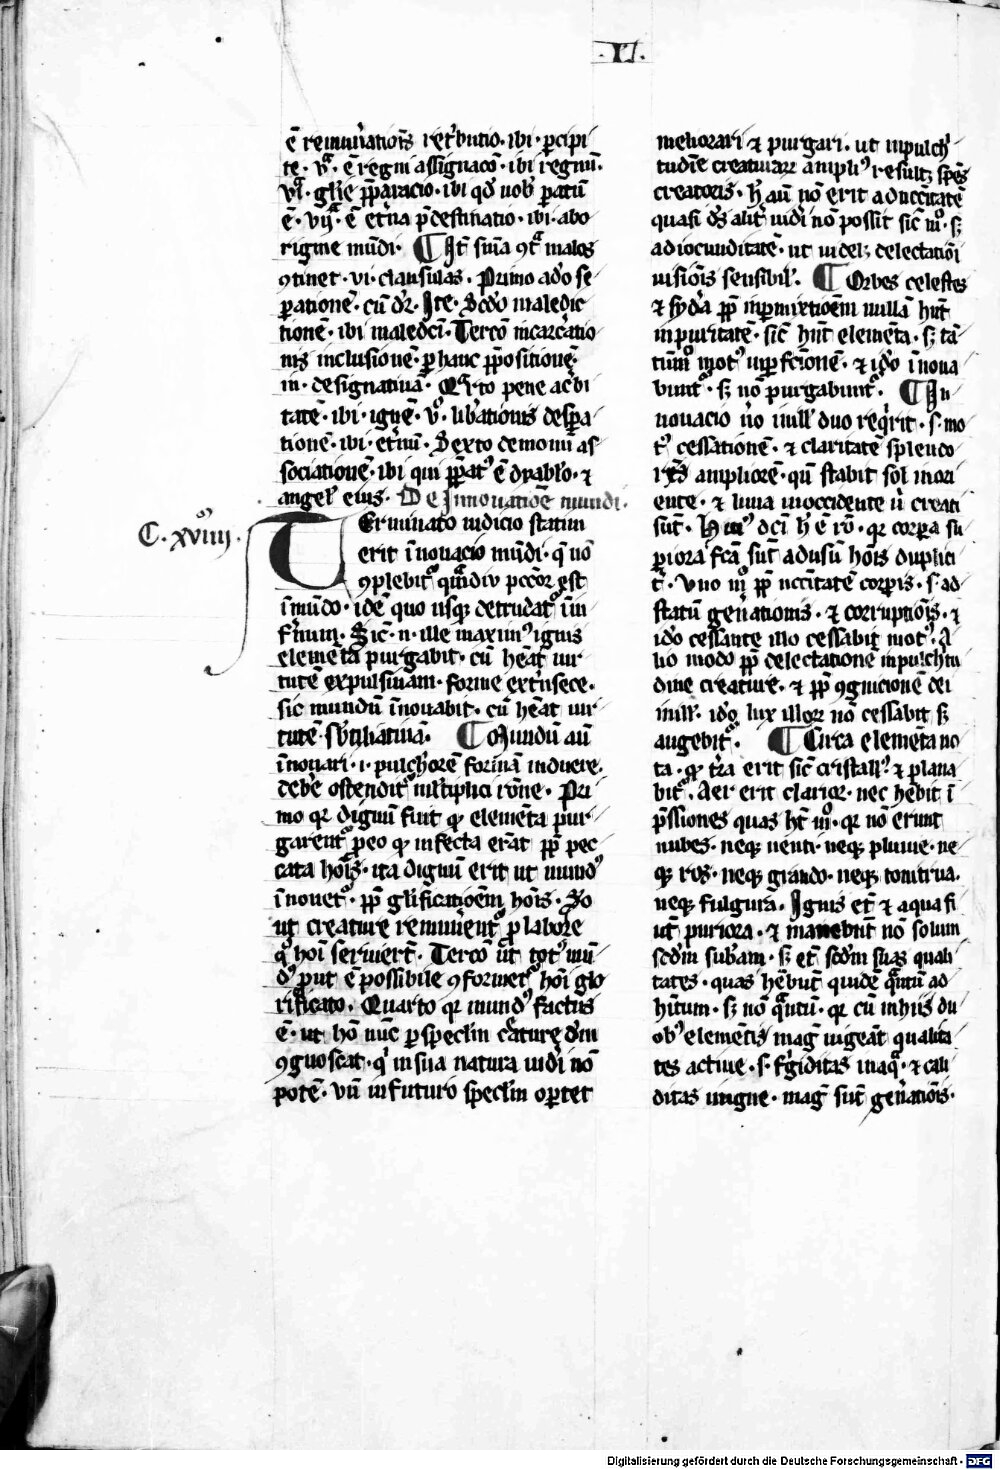 ·L̅·
ē remun̄ationis ret̄butio · ibi · ꝑcipi
te · vᵃ · ē regni assignacō · ibi regnū ·
vıᵃ · glīe p̄paracio · ibi qd̓ uob̓ ꝑatū
ē · vıȷᵃ · ē et̄na p̄destinatio · ibi · abo
rigine mūdi · ¶ It̄ sn̄ia ꝯtᵃ malos
ꝯtinet · vi · clausulas · Primo ad o se
ꝑationē · cū d̄r · Ite · Scd̓o maledic
tionē · ibi maledc̄i · Tercō incarcatio
nis inclusionē · ꝑ hanc p̄positionē
in · designatiuā · Qᵃrto pene ac̄bi
tatē · ibi · ignē · vᵒ · lib̄ationis despᵃ
tionē · ibi · et̄nū · Sexto demonū as
sociationē · ibi qui p̄ꝑatꝰ ē dyablo · ⁊
angel̓ eius · De Innouatiōe mundi ·
C · xvıııȷᵒ ·
Terminato iudicio statim
erit īnouacio mūdi · qᵃ nō
ꝯplebitᷣ qᵃmdiu pccōr est
ī mūdo · idē quo usqꝫ detrudatᷣ in
f̄num · Sic̄ · n · ille maximꝰ ignis
elemēta purgabit · cū hēat uir
tutē expulsiuam · forme ext̄nsece ·
sic mundū īnouabit · cū hēat uir
tutē sb̄tiliatiuā · ¶ Mundū aū
īnouari · i · pulchrorē formā induere ·
debē ostenditᷣ mltiplici rōne · Pri
mo qꝛ dignū fuit qꝙ elemēta pur
garentᷣ ꝑ eo qꝙ infecta erāt pp̄ pec
cata hoīs · ita dignū erit ut mundꝰ
īnouetᷣ · pp̄ glīficatioēm hoīs · So
ut creature remun̄entᷣ ꝓ labore
qᵒ hoī seruiert̄ · Tercō ut totꝰ mū
dꝰ put ē possibile ꝯformetᷣ hoī glo
rificato · Quarto qꝛ mundꝰ factus
ē · ut hō nūc ꝑ speclm c̄ature dm̄
ꝯgnoscat · qⁱ in sua natura uid̓i nō
potē · vn̄ in futuro speclm oꝑtet
meliorari ⁊ purgari · ut in pulch̓
tudīe creaturaꝝ amplꝰ resultꝫ spēs
creatoris · H̓ aū nō erit ad ncc̄itatē
quasi dꝰs alit̄ uid̓i nō possit sic̄ mᵒ · sꝫ
ad iocunditatē · ut uidelꝫ delectatiōi
uisiōis sensibil̓ · ¶ Orbes celestes
⁊ syd̓a pp̄ inꝑmixtioēm nullā hn̄t
inpuritatē · sic̄ hn̄t elemēta · sꝫ tā
tūmᵒ motꝰ inꝑfcionē · ⁊ id̓o īnoua
buntᷣ · sꝫ nō purgabuntᷣ · ¶ In
nouacio uᵒ ill̓ duo reqⁱrit · s · mo
tꝰ cessationē · ⁊ claritatē splendo
ris ampliorē · qn̄ stabit sol in ori
ente · ⁊ luna in occidente ubi creati
sūt · H̓ dc̄i h̓ ē rō · qꝛ corꝑa su
ꝑiora fcā sūt ad usū hoīs duplici
t̄ · Uno mᵒ pp̄ ncc̄itatē corꝑis · s · ad
statū gen̄ationis · ⁊ corruptiōis · ⁊
id̓o cessante illo cessabit motꝰ · A
lio modo pp̄ delectationē in pulch̓tu
dine creature · ⁊ pp̄ ꝯgnicionē dei
in ill̓ · id̓o lux illoꝝ nō cessabit sꝫ
augebitᷣ · ¶ Circa elemēta no
ta · qꝙ t̄ra erit sic̄ cristall̓ꝰ ⁊ plana
bitᷣ · Aer erit clarior · nec hēbit ī
p̄ssiones quas hꝫ mᵒ · qꝛ nō erunt
nubes · neqꝫ uenti · neqꝫ pluuie · ne
qꝫ ros · neqꝫ grando · neqꝫ tonitrua ·
neqꝫ fulgura · Ignis et̄ ⁊ aqua fi
ut̄ puriora · ⁊ manebūt nō solum
scd̓m sub̄am · sꝫ et̄ scd̓m suas quali
tates · quas hēbūt quidē qᵃntū ad
hītum · sꝫ nō qᵃntū · qꝛ cū in hiis du
obꝰ elemētis mag̓ uigeāt qualita
tes actiue · s · f̄giditas in aqᵃ · ⁊ cali
ditas in igne · mag̓ sūt gen̄atiōis ·
Digitalisierung gefördert durch die Deutsche Forschungsgemeinschaft - DFG